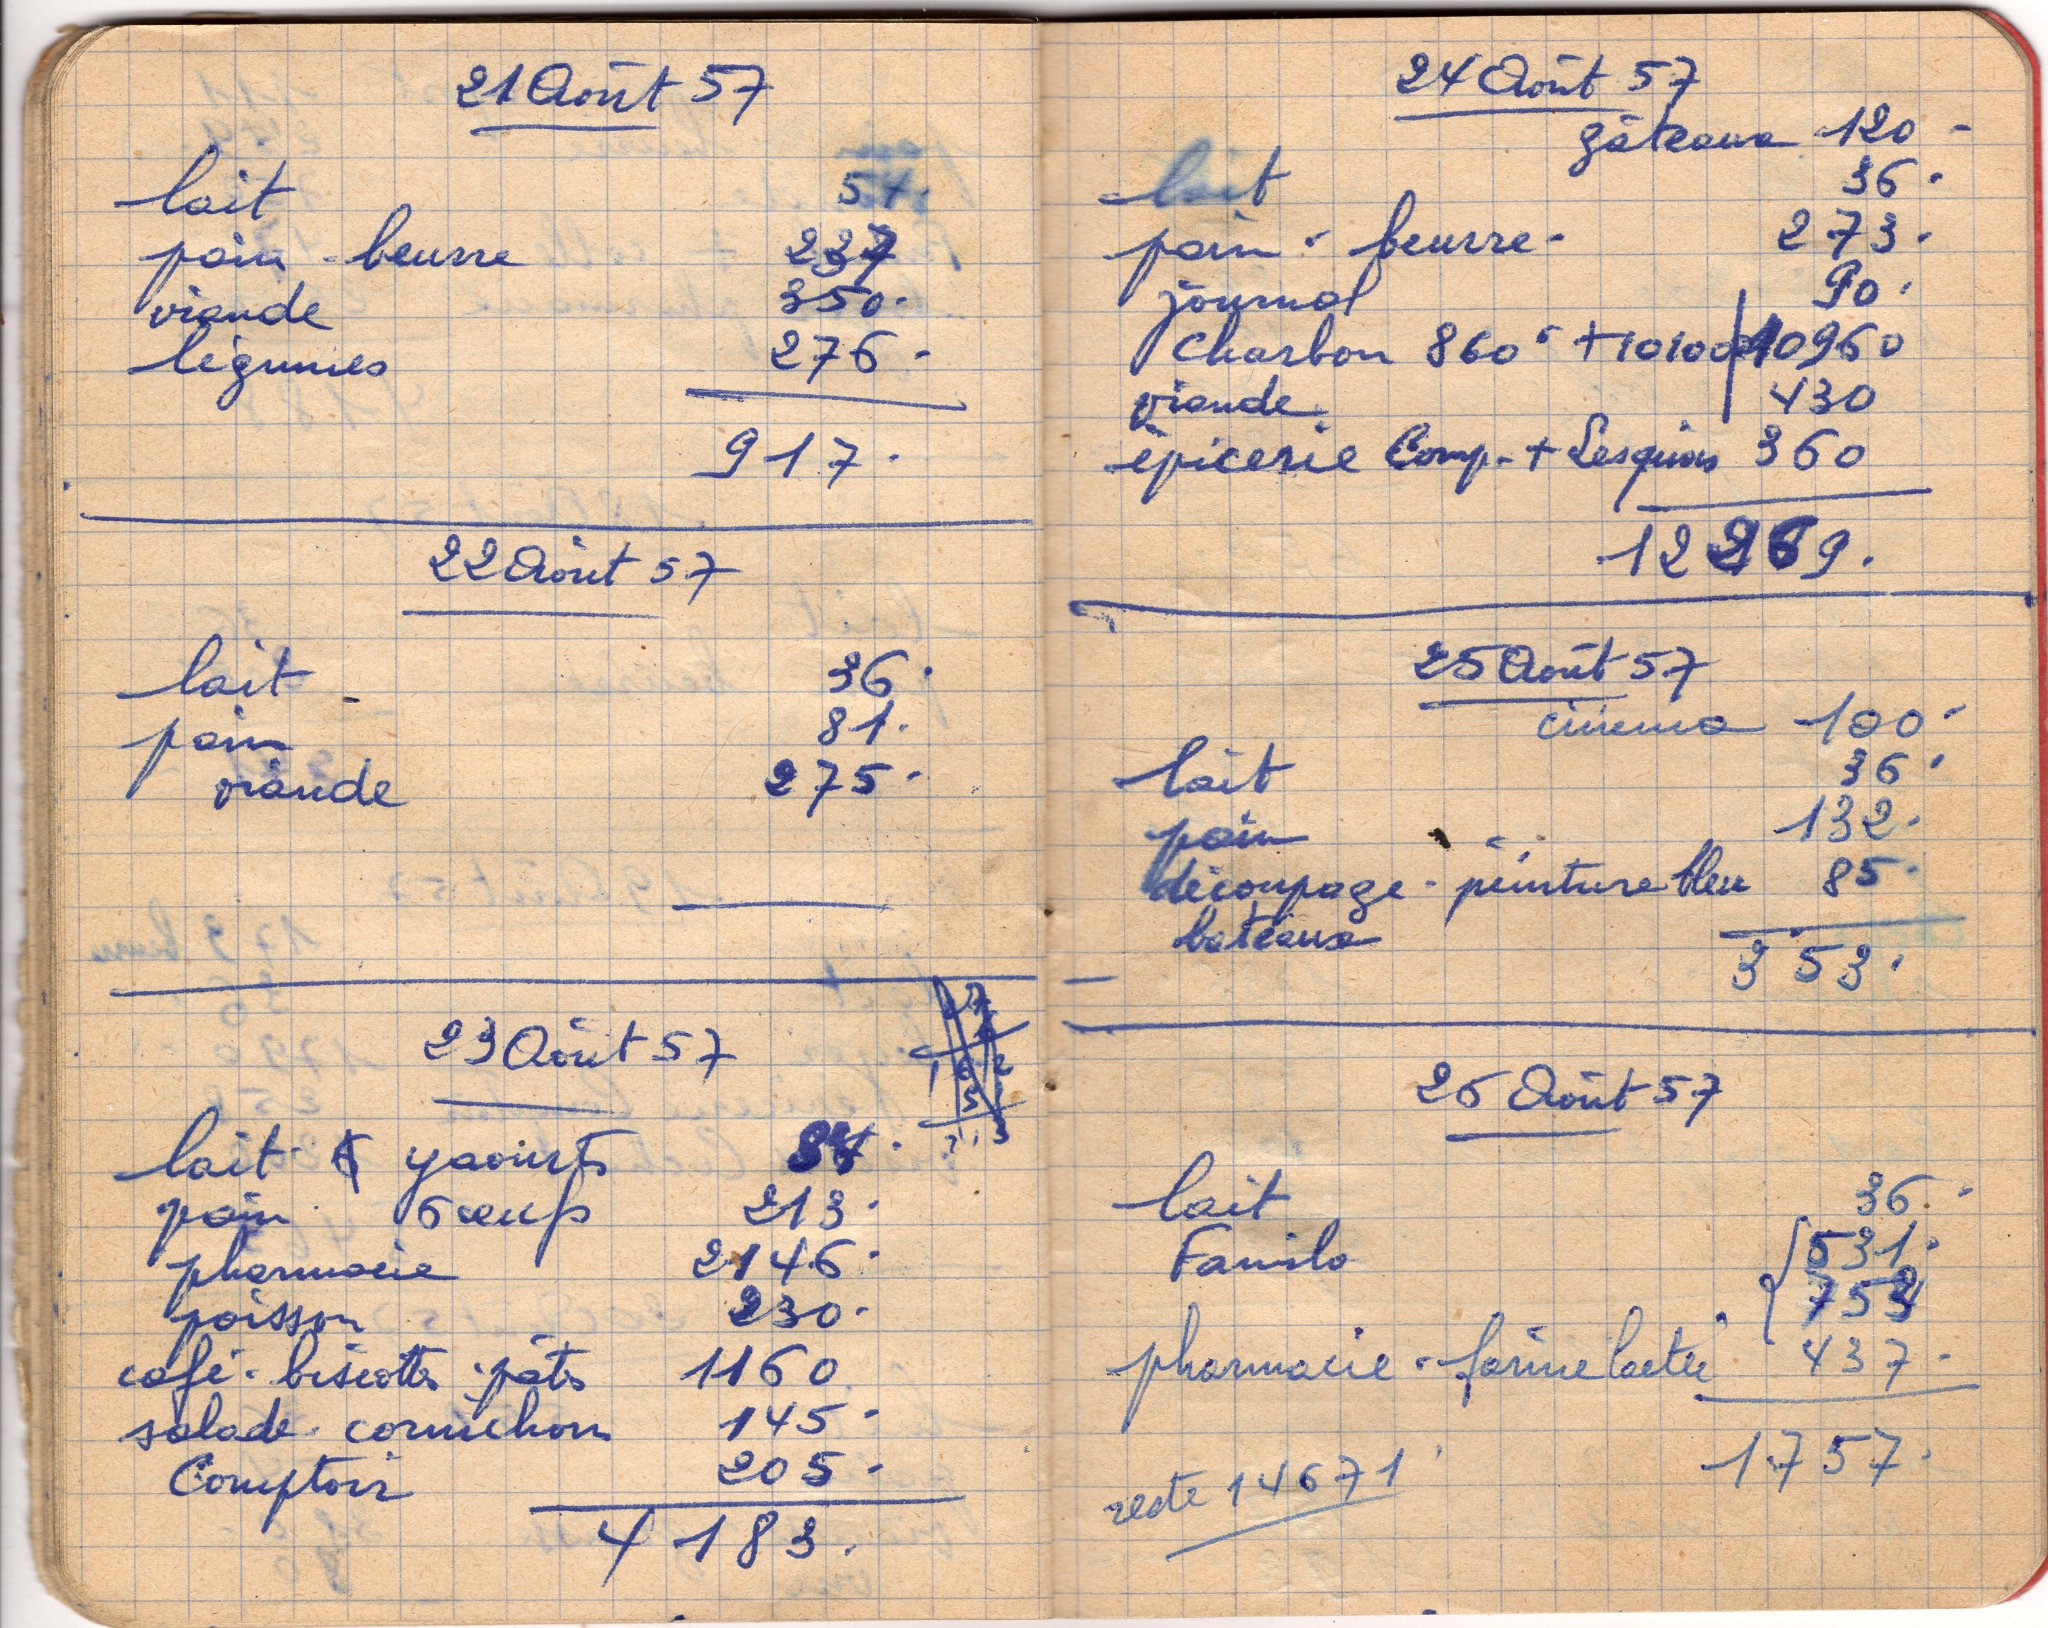 21 Août 57
lait 54.
pain - beurre 237
viande 350.
légumes 276.
917.
22 Août 57
lait 36.
pain 81.
viande 275.
23 Août 57
lait - 4 yaourts 84.
pain. 6 oeufs 213.
pharmacie 2146.
poisson 230.
café. biscottes. pâtes 1160
salade. cornichon 145.
Comptoir 205.
4183.
24 Août 57
gâteaux 120 -
lait 36.
pain. beurre. 273.
journal 90.
Charbon 860 + 10100 10960
viande 430
épicerie Comp. + Lesquins 360
12269.
25 Août 57
cinema 100.
lait 36.
pain 132.
découpage. peinture bleu 85.
bateaux
353.
26 Août 57
lait 36.
Familo 531.
753
pharmacie. farine lactée 437.
1757.
reste 14671